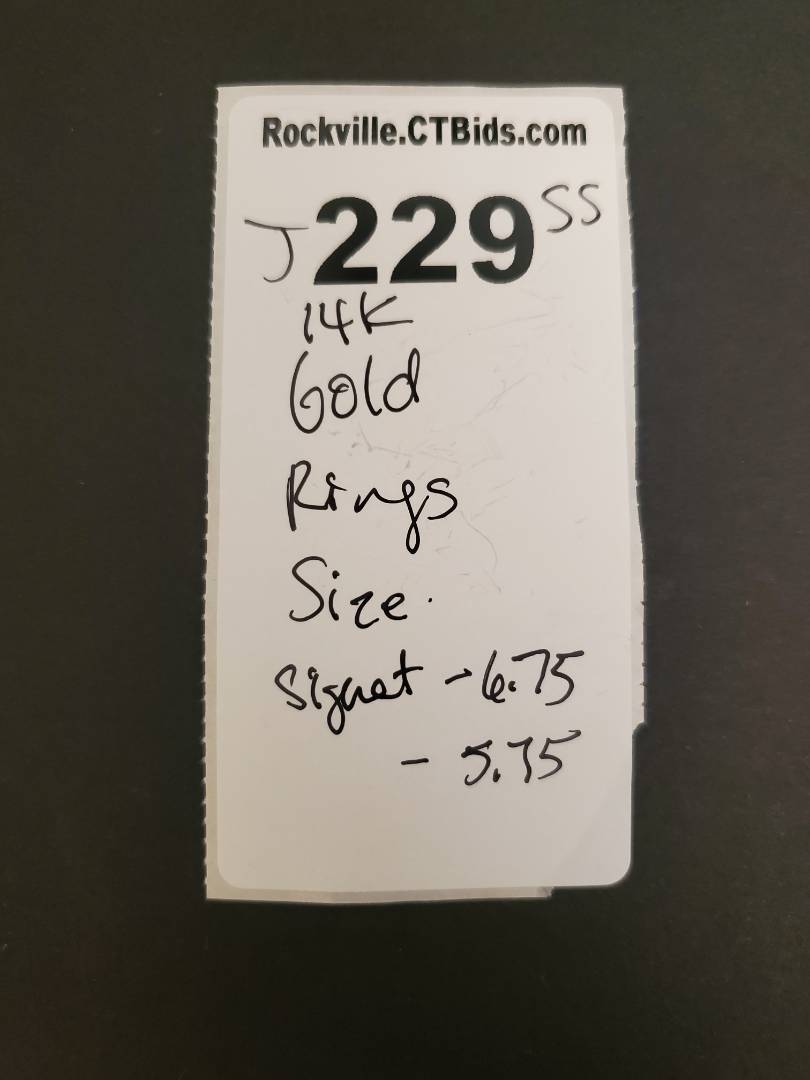 Rockville.CTBids.com
J 229 SS
14K
Gold
Rings
Size.
Signet - 6.75
- 5.75